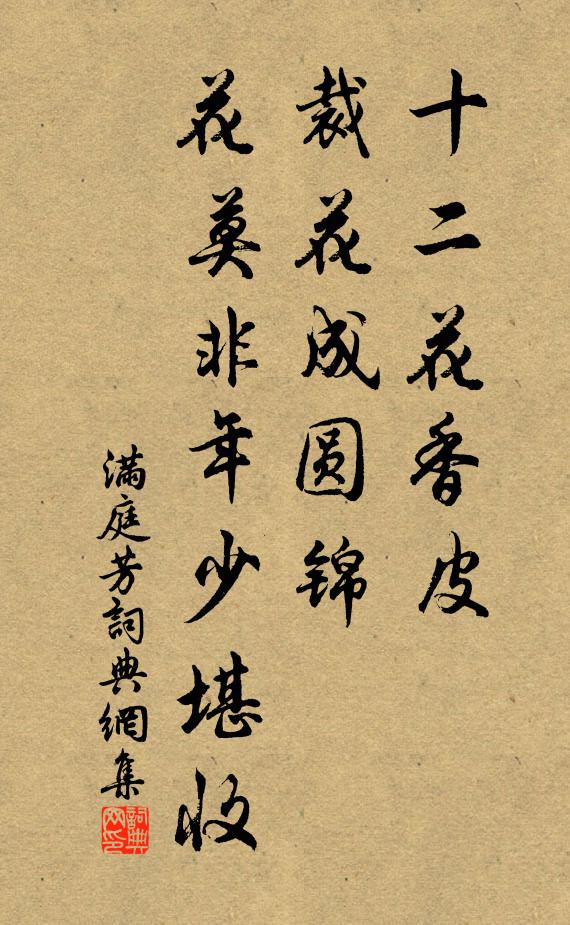 十二花香皮
裁花成圆锦
花莫非年少堪收
满庭芳詞典網集
詞典网印